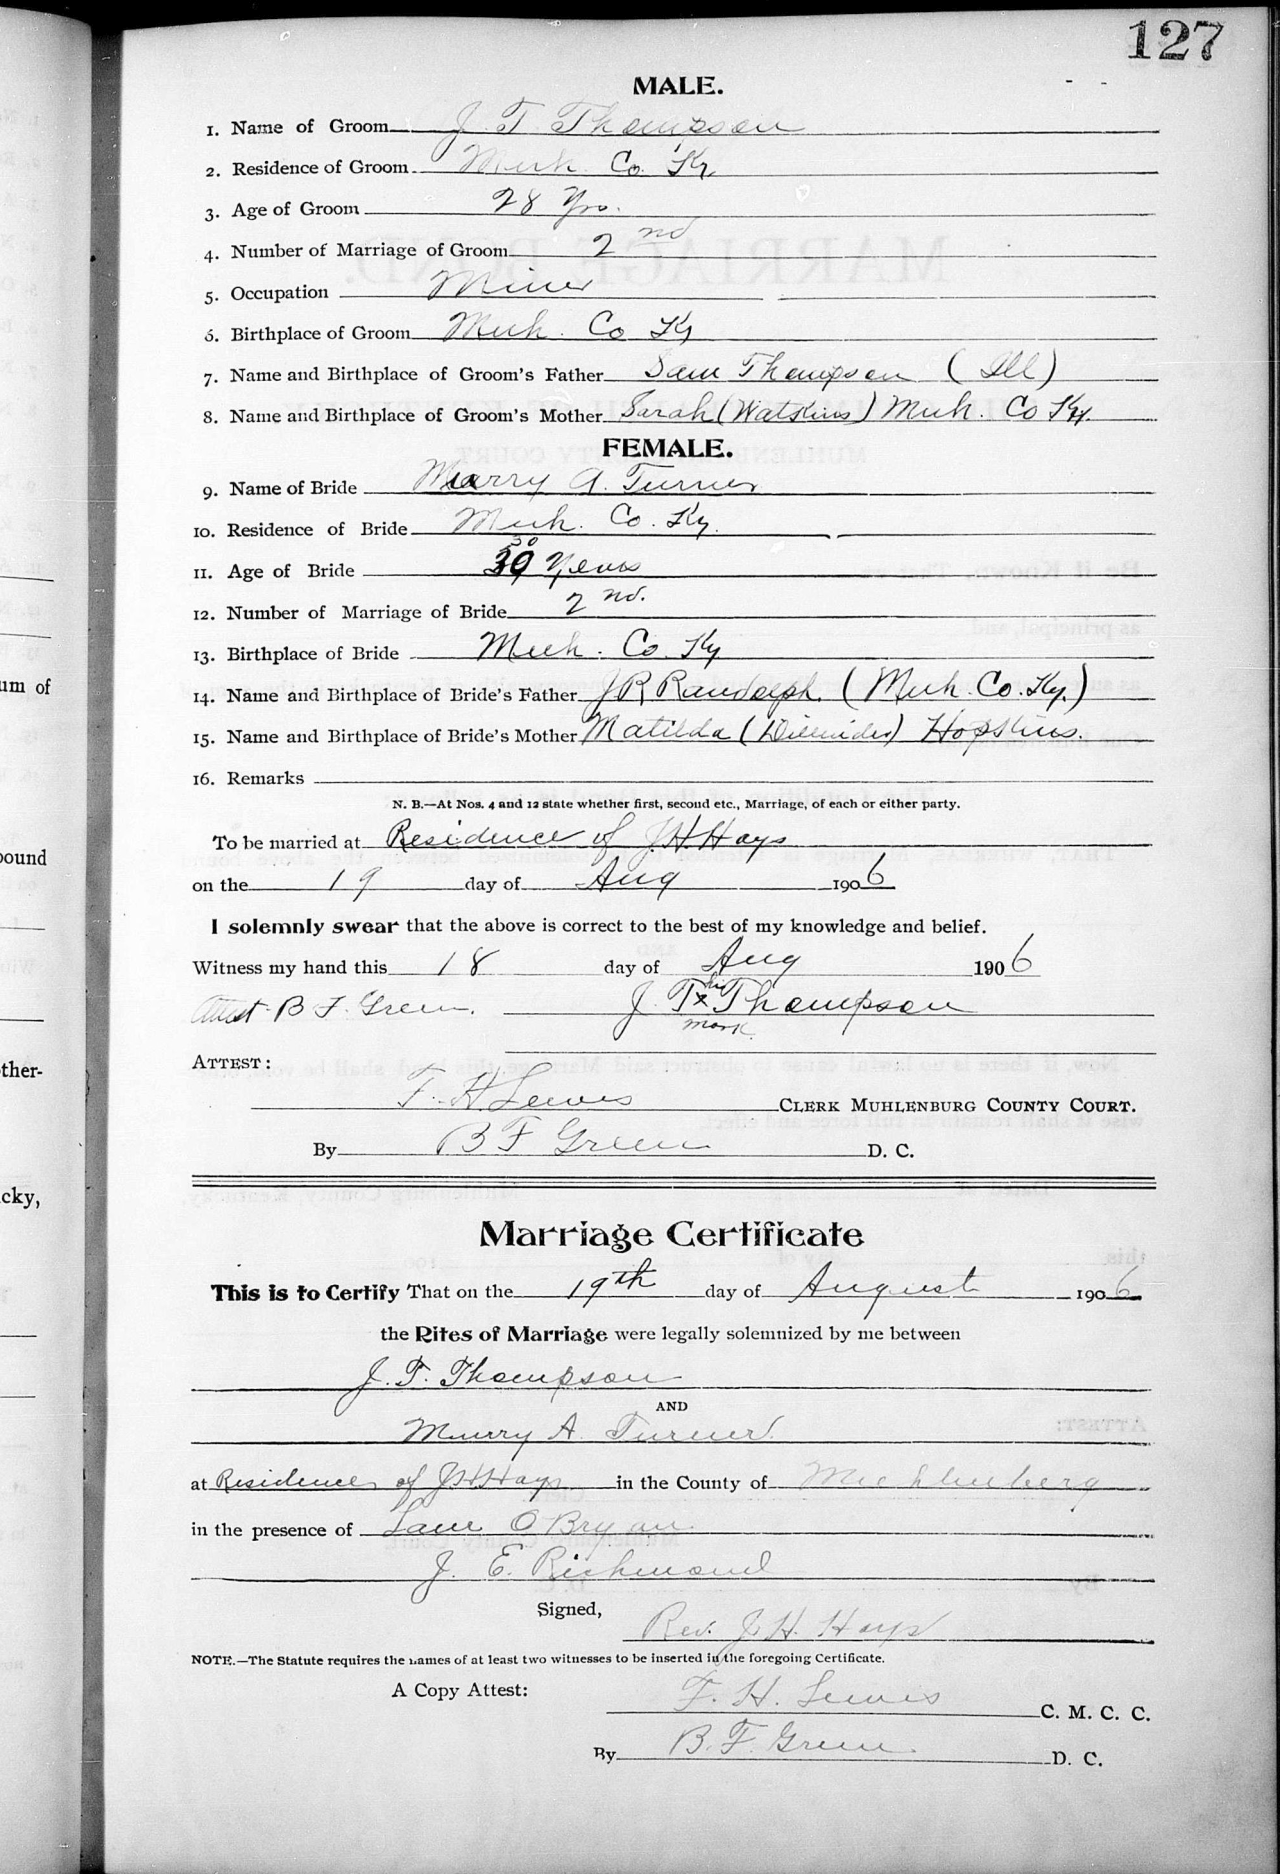 127
MALE.
1. Name of Groom J. T. Thompson
2. Residence of Groom Muh. Co Ky
3. Age of Groom 28 Yrs.
4. Number of Marriage of Groom 2nd
5. Occupation Miner
6. Birthplace of Groom Muh. Co Ky
7. Name and Birthplace of Groom's Father Sam Thompson (Ill)
8. Name and Birthplace of Groom's Mother Sarah (Watskins) Muh. Co Ky.
FEMALE.
9. Name of Bride Marry A. Turner
10. Residence of Bride Muh. Co. Ky.
11. Age of Bride 30 Years
12. Number of Marriage of Bride 2nd.
13. Birthplace of Bride Muh. Co. Ky
um of
14. Name and Birthplace of Bride's Father J R Randolph. (Muh. Co. Ky.)
15. Name and Birthplace of Bride's Mother Matilda Hopkins.
16. Remarks
N. B.—At Nos. 4 and 12 state whether first, second etc., Marriage, of each or either party.
To be married at Residence of J H Hays
ound
on the 19 day of Aug 1906
I solemnly swear that the above is correct to the best of my knowledge and belief.
Witness my hand this 18 day of Aug 1906
Attest B F. Green. J. T x his Thompson
mark
ATTEST:
ther-
F. H. Lewis CLERK MUHLENBURG COUNTY COURT.
By B F Green D. C.
cky,
Marriage Certificate
This is to Certify That on the 19th day of August 1906
the Rites of Marriage were legally solemnized by me between
J. T. Thompson
AND
Marry A. Turner
at Residence of J H Hays in the County of Muhlenberg
in the presence of O Bryan
J. E. Richmond
Signed,
Rev. J. H. Hays
NOTE.—The Statute requires the names of at least two witnesses to be inserted in the foregoing Certificate.
A Copy Attest:
F. H. Lewis C. M. C. C.
By B. F. Green D. C.